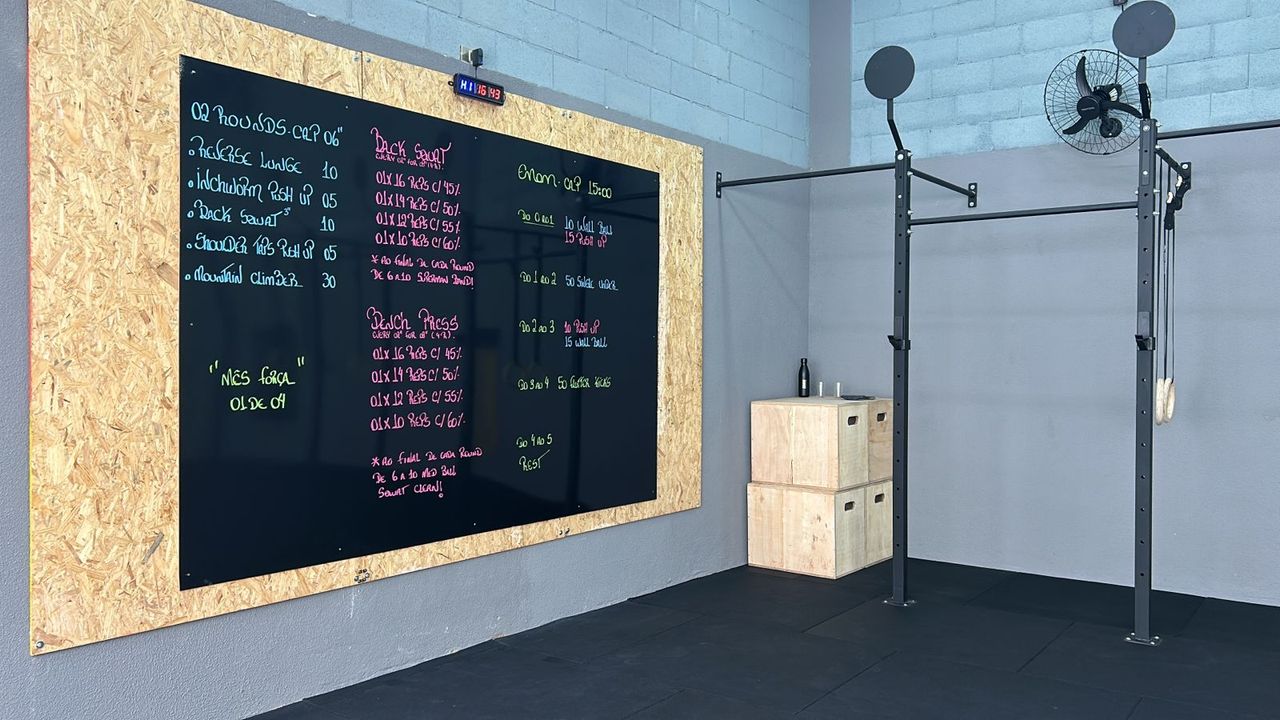 02 ROUNDS-CAP 06"
• REVERSE LUNGE 10
• INCHWORM PUSH UP 05
• BACK SQUAT 10
• SHOULDER TAPS PUSH UP 05
• MOUNTAIN CLIMBER 30
"MÊS FORÇA"
01 DE 04
BACK SQUAT
EVERY 02" FOR 08" (4R).
01X 16 REPS C/ 45%
01X 14 REPS C/ 50%
01X 12 REPS C/ 55%
01X 10 REPS C/ 60%
* AO FINAL DE CADA ROUND
DE 6 A 10 SUPERMAN BAND!
BENCH PRESS
EVERY 02" FOR 08" (4R).
01X 16 REPS C/ 45%
01X 14 REPS C/ 50%
01X 12 REPS C/ 55%
01X 10 REPS C/ 60%
* AO FINAL DE CADA ROUND
DE 6 A 10 MED BALL
SQUAT CLEAN!
EMOM - CAP 15:00
DO 0 AO 1 10 WALL BALL
15 PUSH UP
DO 1 AO 2 50 SINGLE UNDER
DO 2 AO 3 10 PUSH UP
15 WALL BALL
DO 3 AO 4 50 FLUTTER KICKS
DO 4 AO 5
REST
H1 16 43